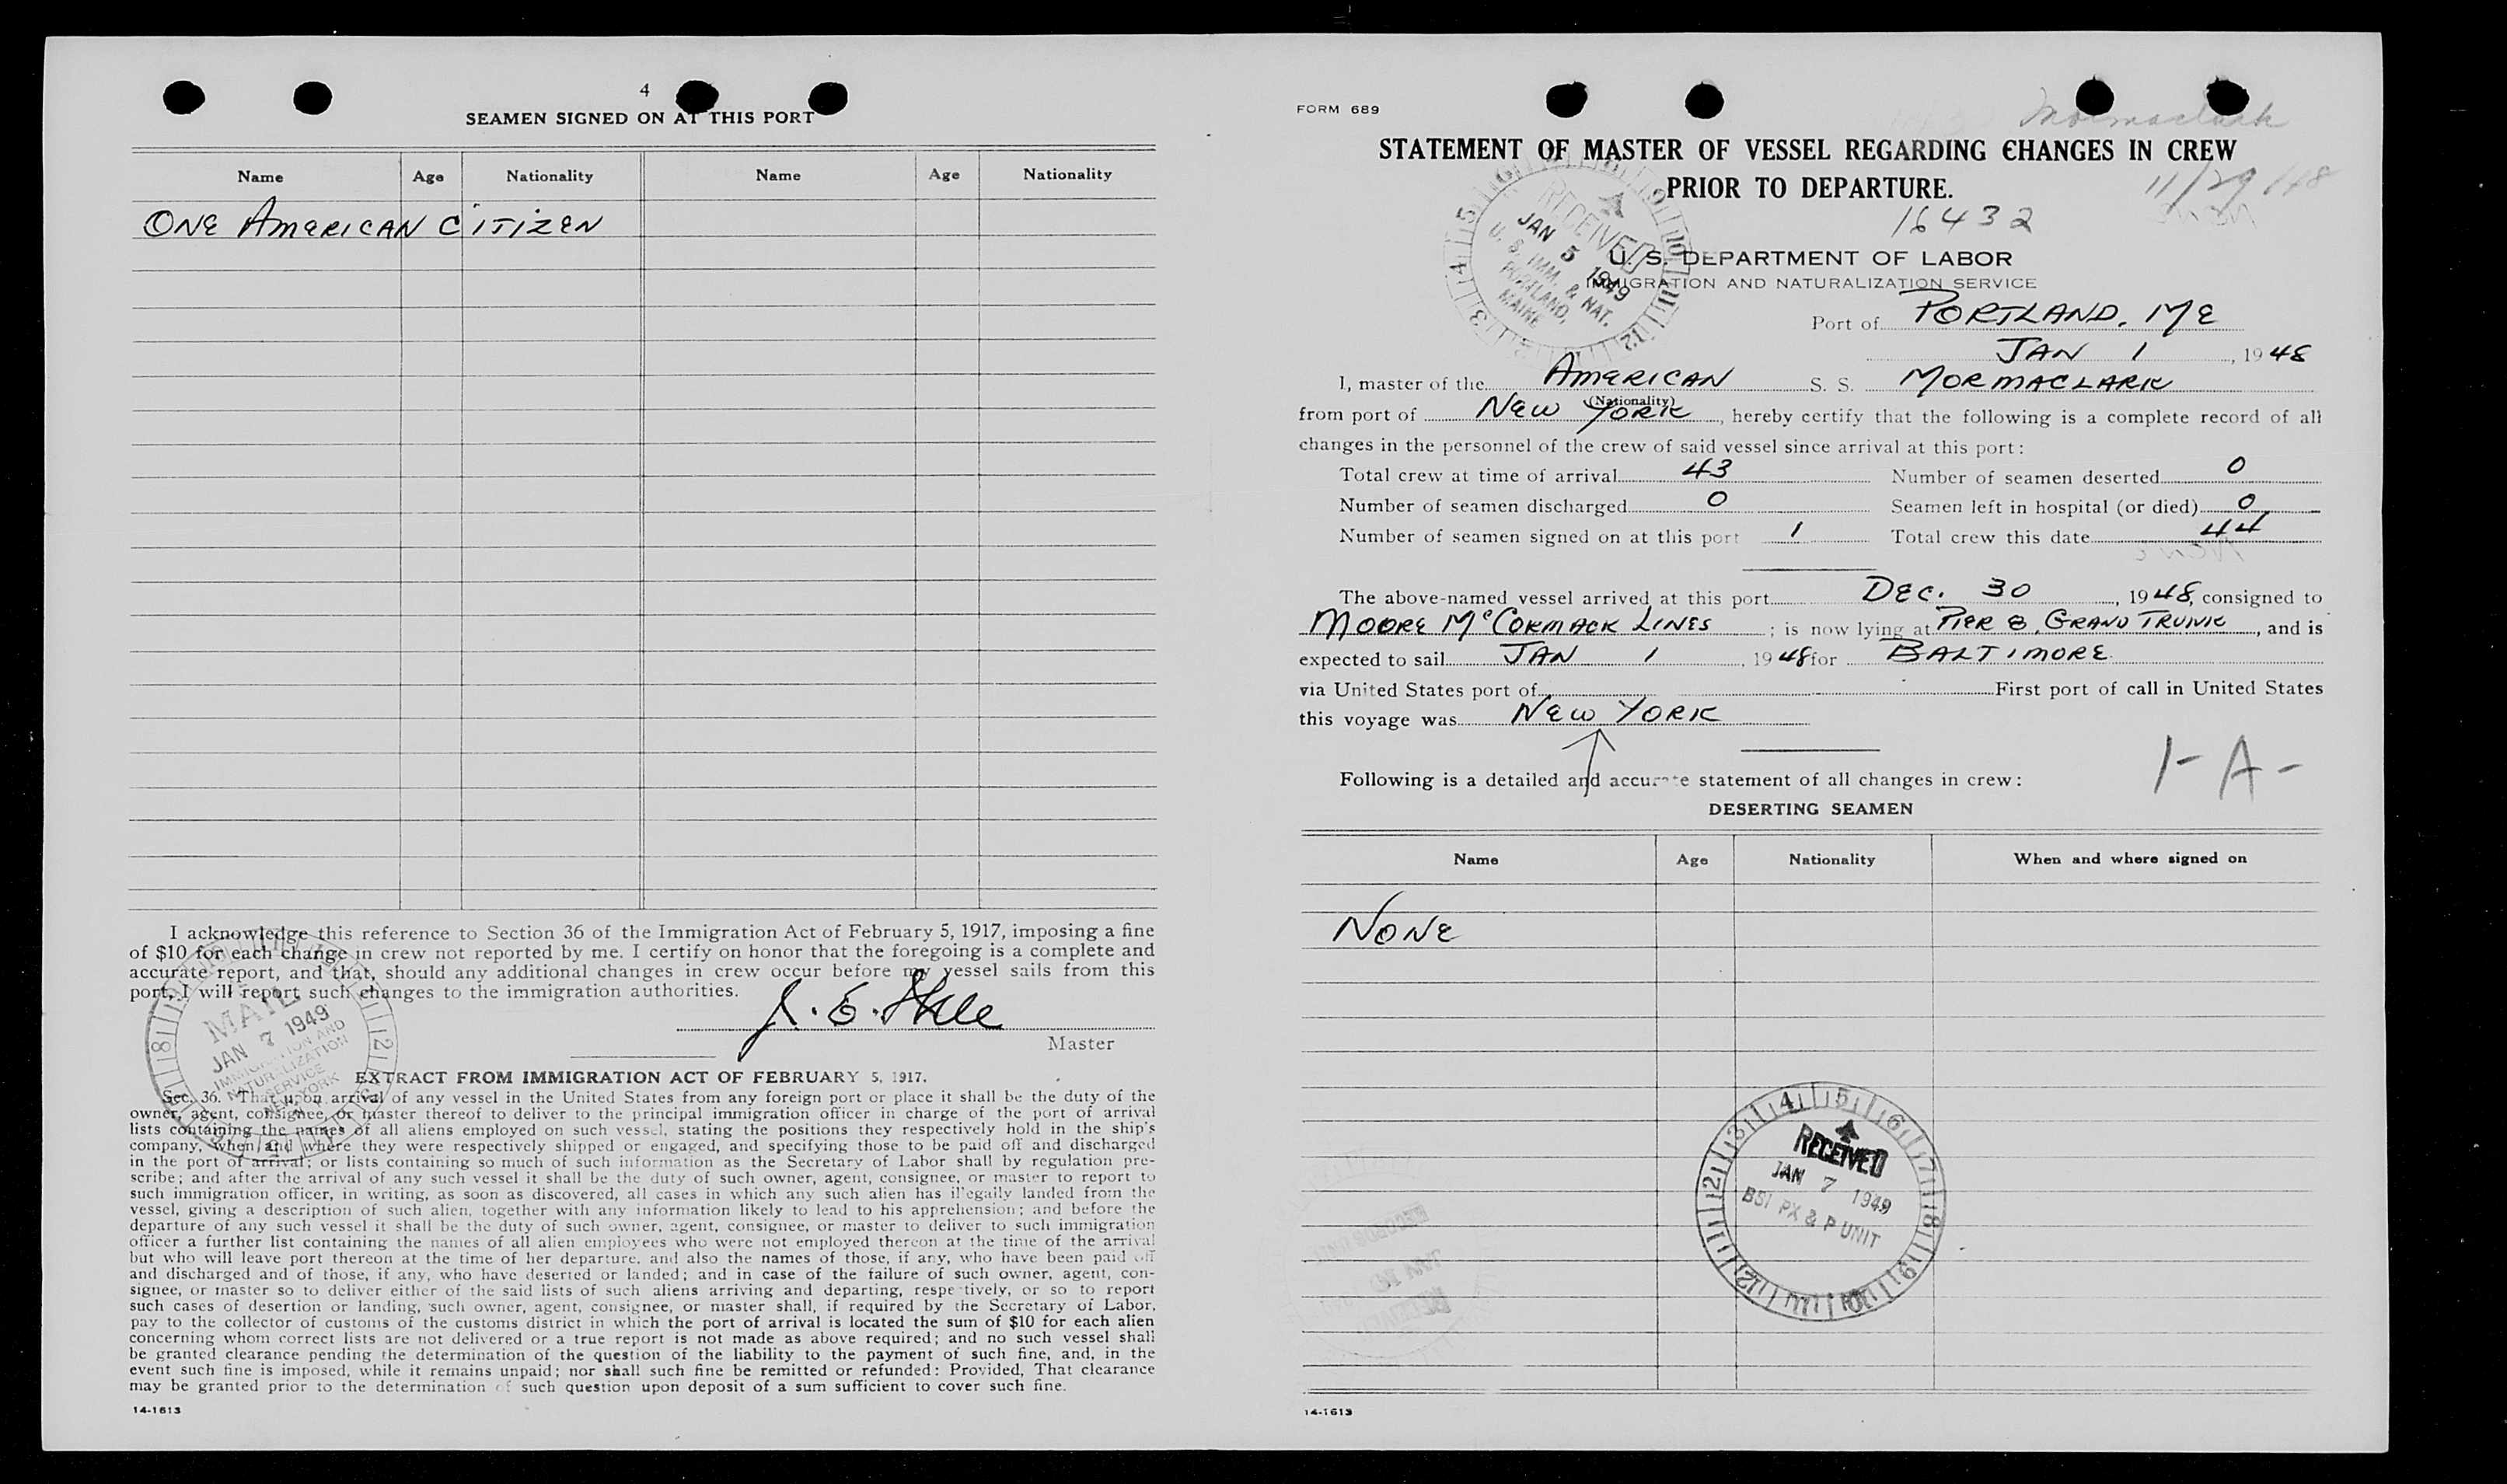 4
SEAMEN SIGNED ON AT THIS PORT
Name Age Nationality Name Age Nationality
ONE AMERICAN CITIZEN
I acknowledge this reference to Section 36 of the Immigration Act of February 5, 1917, imposing a fine
of $10 for each change in crew not reported by me. I certify on honor that the foregoing is a complete and
accurate report, and that, should any additional changes in crew occur before my vessel sails from this
port, I will report such changes to the immigration authorities.
Master
MAIL
JAN 7 1949
IMMIGRATION AND
NATURALIZATION
SERVICE
NEW YORK
EXTRACT FROM IMMIGRATION ACT OF FEBRUARY 5, 1917.
Sec. 36. That upon arrival of any vessel in the United States from any foreign port or place it shall be the duty of the
owner, agent, consignee, or master thereof to deliver to the principal immigration officer in charge of the port of arrival
lists containing the names of all aliens employed on such vessel, stating the positions they respectively hold in the ship's
company, when and where they were respectively shipped or engaged, and specifying those to be paid off and discharged
in the port of arrival; or lists containing so much of such information as the Secretary of Labor shall by regulation pre-
scribe; and after the arrival of any such vessel it shall be the duty of such owner, agent, consignee, or master to report to
such immigration officer, in writing, as soon as discovered, all cases in which any such alien has illegally landed from the
vessel, giving a description of such alien, together with any information likely to lead to his apprehension; and before the
departure of any such vessel it shall be the duty of such owner, agent, consignee, or master to deliver to such immigration
officer a further list containing the names of all alien employees who were not employed thereon at the time of the arrival
but who will leave port thereon at the time of her departure, and also the names of those, if any, who have been paid off
and discharged and of those, if any, who have deserted or landed; and in case of the failure of such owner, agent, con-
signee, or master so to deliver either of the said lists of such aliens arriving and departing, respectively, or so to report
such cases of desertion or landing, such owner, agent, consignee, or master shall, if required by the Secretary of Labor,
pay to the collector of customs of the customs district in which the port of arrival is located the sum of $10 for each alien
concerning whom correct lists are not delivered or a true report is not made as above required; and no such vessel shall
be granted clearance pending the determination of the question of the liability to the payment of such fine, and, in the
event such fine is imposed, while it remains unpaid; nor shall such fine be remitted or refunded: Provided, That clearance
may be granted prior to the determination of such question upon deposit of a sum sufficient to cover such fine.
14-1613
FORM 689
Mormaclark
STATEMENT OF MASTER OF VESSEL REGARDING CHANGES IN CREW
PRIOR TO DEPARTURE.
11/29/48
16432
RECEIVED
JAN 5 1949
U. S. IMM. & NAT.
PORTLAND,
MAINE
U. S. DEPARTMENT OF LABOR
IMMIGRATION AND NATURALIZATION SERVICE
Port of PORTLAND, ME
JAN 1, 1948
I, master of the AMERICAN S. S. MORMACLARK
(Nationality)
from port of NEW YORK, hereby certify that the following is a complete record of all
changes in the personnel of the crew of said vessel since arrival at this port:
Total crew at time of arrival 43 Number of seamen deserted 0
Number of seamen discharged 0 Seamen left in hospital (or died) 0
Number of seamen signed on at this port 1 Total crew this date 44
The above-named vessel arrived at this port DEC. 30, 1948, consigned to
MOORE McCORMACK LINES; is now lying at PIER 8, GRAND TRUNK, and is
expected to sail JAN 1, 1948 for BALTIMORE
via United States port of First port of call in United States
this voyage was NEW YORK
1-A-
Following is a detailed and accurate statement of all changes in crew:
DESERTING SEAMEN
Name Age Nationality When and where signed on
NONE
RECEIVED
JAN 7 1949
BSI PX & P UNIT
14-1613